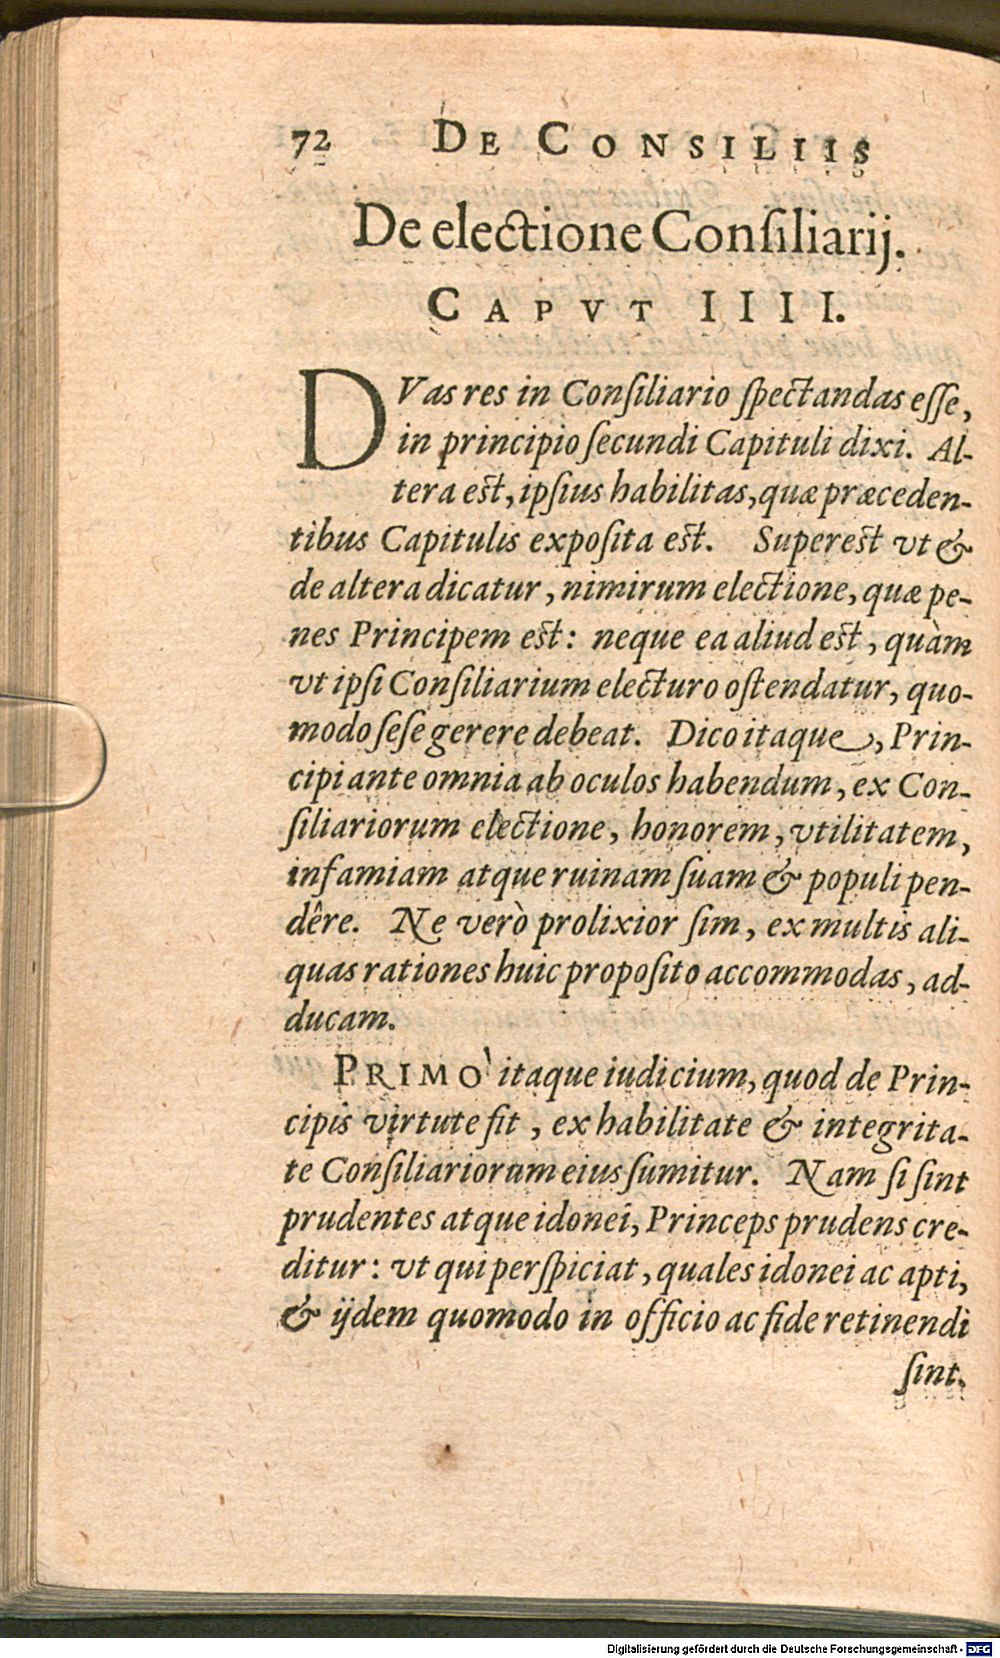 72 DE CONSILIIS
De electione Consiliarij.
CAPVT IIII.
DVas res in Consiliario spectandas esse,
in principio secundi Capituli dixi. Al-
tera est, ipsius habilitas, quæ præceden-
tibus Capitulis exposita est. Superest vt &
de altera dicatur, nimirum electione, quæ pe-
nes Principem est: neque ea aliud est, quàm
vt ipsi Consiliarium electuro ostendatur, quo-
modo sese gerere debeat. Dico itaque, Prin-
cipi ante omnia ab oculos habendum, ex Con-
siliariorum electione, honorem, vtilitatem,
infamiam atque ruinam suam & populi pen-
dêre. Ne verò prolixior sim, ex multis ali-
quas rationes huic proposito accommodas, ad-
ducam.
PRIMO` itaque iudicium, quod de Prin-
cipis virtute fit, ex habilitate & integrita-
te Consiliariorum eius sumitur. Nam si sint
prudentes atque idonei, Princeps prudens cre-
ditur: vt qui perspiciat, quales idonei ac apti,
& ijdem quomodo in officio ac fide retinendi
sint.
Digitalisierung gefördert durch die Deutsche Forschungsgemeinschaft - DFG